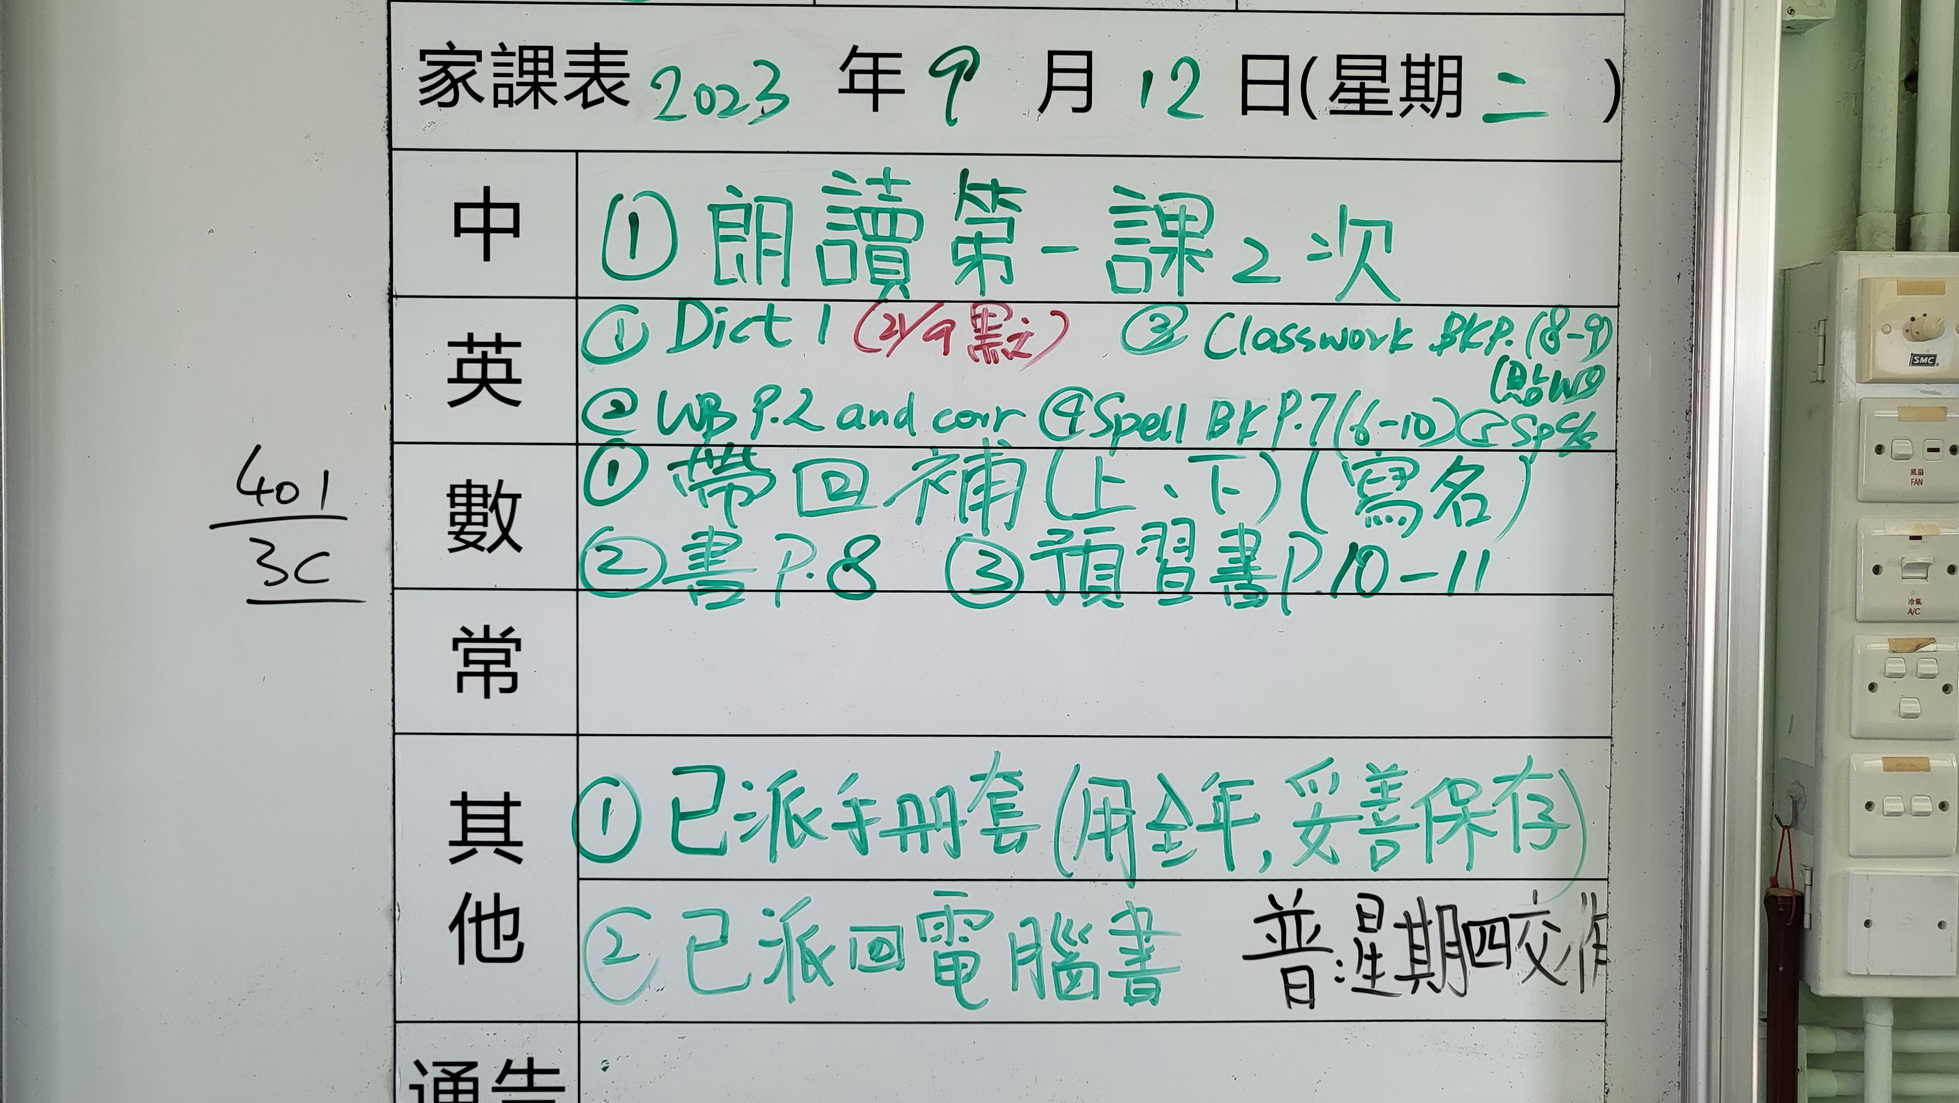 家課表 2023 年 9 月 12 日(星期 二 )
中
① 朗讀第一課2次
英
① Dict 1 (21/9 默) ③ Classwork BK P.(8-9)
② WB P.2 and corr ④ Spell BK P.7(6-10) ⑤ Sp
數
① 帶回補(上、下)(寫名)
② 書P.8 ③ 預習書P.10-11
401
3C
常
其他
① 已派手冊套(用全年,妥善保存)
② 已派回電腦書 普:星期四交作
通告
SMC
風扇
FAN
冷氣
A/C